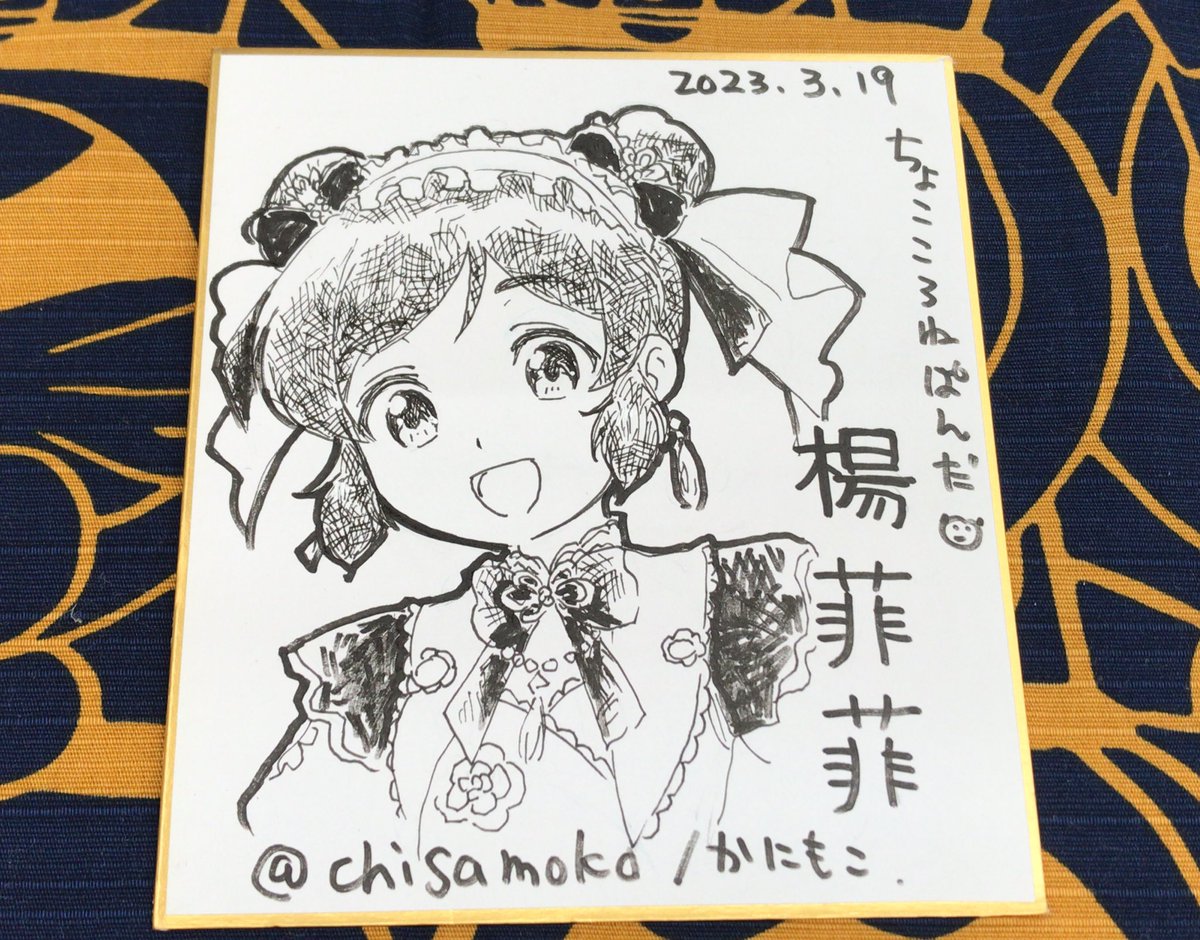 2023.3.19
ちょこころねぱんだ
楊菲菲
@chisamoko/かにもこ.